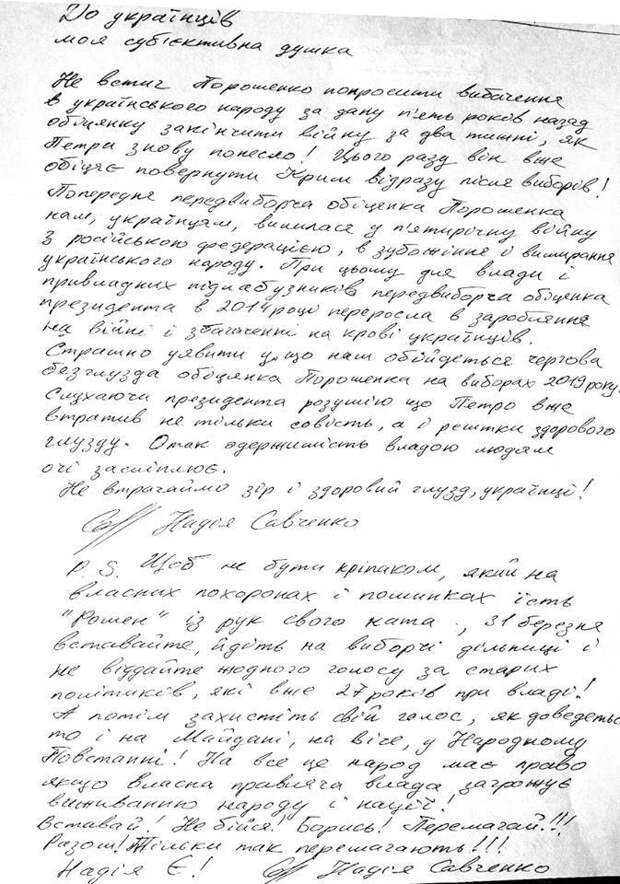 До українців
моя суб'єктивна думка
Не встиг Порошенко попросити вибачення
в українського народу за дану п'ять років назад
обіцянку закінчити війну за два тижні, як
Петра знову понесло! Цього разу він вже
обіцяє повернути Крим відразу після виборів!
Попередня передвиборча обіцянка Порошенка
нам, українцям, вилилася у п'ятирічну війну
з російською федерацією, в зубожіння і вимирання
українського народу. При цьому для влади і
привладних підлабузників передвиборча обіцянка
президента в 2014 році переросла в зароблянні
на війні і збагаченні на крові українців.
Страшно уявити у що нам обійдеться чергова
безглузда обіцянка Порошенка на виборах 2019 року.
Слухаючи президента розумію що Петро вже
втратив не тільки совість, а і рештки здорового
глузду. Отак одержимість владою людям
очі засліплює.
Не втрачаймо зір і здоровий глузд, українці!
Надія Савченко
P.S. Щоб не бути кріпаком, який на
власних похоронах і поминках їсть
"Рошен" із рук свого ката ., 31 березня
вставайте, йдіть на виборчі дільниці і
не віддайте жодного голосу за старих
політиків, які вже 27 років при владі!
А потім захистіть свій голос, як доведеться
то і на Майдані, на віче, у Народному
Повстанні! На все це народ має право
якщо власна правляча влада загрожує
виживанню народу і нації!
Вставай! Не бійся! Борись! Перемагай!!!
Разом! Тільки так перемагають!!!
Надія Є! Надія Савченко